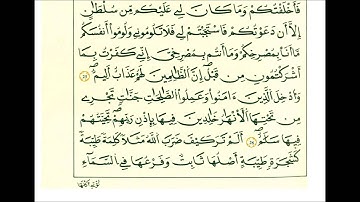 فَأَخْلَفْتُكُمْ وَمَا كَانَ لِيَ عَلَيْكُم مِّن سُلْطَٰنٍ
إِلَّا أَن دَعَوْتُكُمْ فَاسْتَجَبْتُمْ لِي فَلَا تَلُومُونِي وَلُومُوا أَنفُسَكُم
مَّا أَنَا بِمُصْرِخِكُمْ وَمَا أَنتُم بِمُصْرِخِيَّ إِنِّي كَفَرْتُ بِمَا
أَشْرَكْتُمُونِ مِن قَبْلُ إِنَّ الظَّٰلِمِينَ لَهُمْ عَذَابٌ أَلِيمٌ
وَأُدْخِلَ الَّذِينَ ءَامَنُوا وَعَمِلُوا الصَّٰلِحَٰتِ جَنَّٰتٍ تَجْرِي
مِن تَحْتِهَا الْأَنْهَٰرُ خَٰلِدِينَ فِيهَا بِإِذْنِ رَبِّهِمْ تَحِيَّتُهُمْ
فِيهَا سَلَٰمٌ أَلَمْ تَرَ كَيْفَ ضَرَبَ اللَّهُ مَثَلًا كَلِمَةً طَيِّبَةً
كَشَجَرَةٍ طَيِّبَةٍ أَصْلُهَا ثَابِتٌ وَفَرْعُهَا فِي السَّمَاءِ
تُؤْتِي أُكْلَهَا